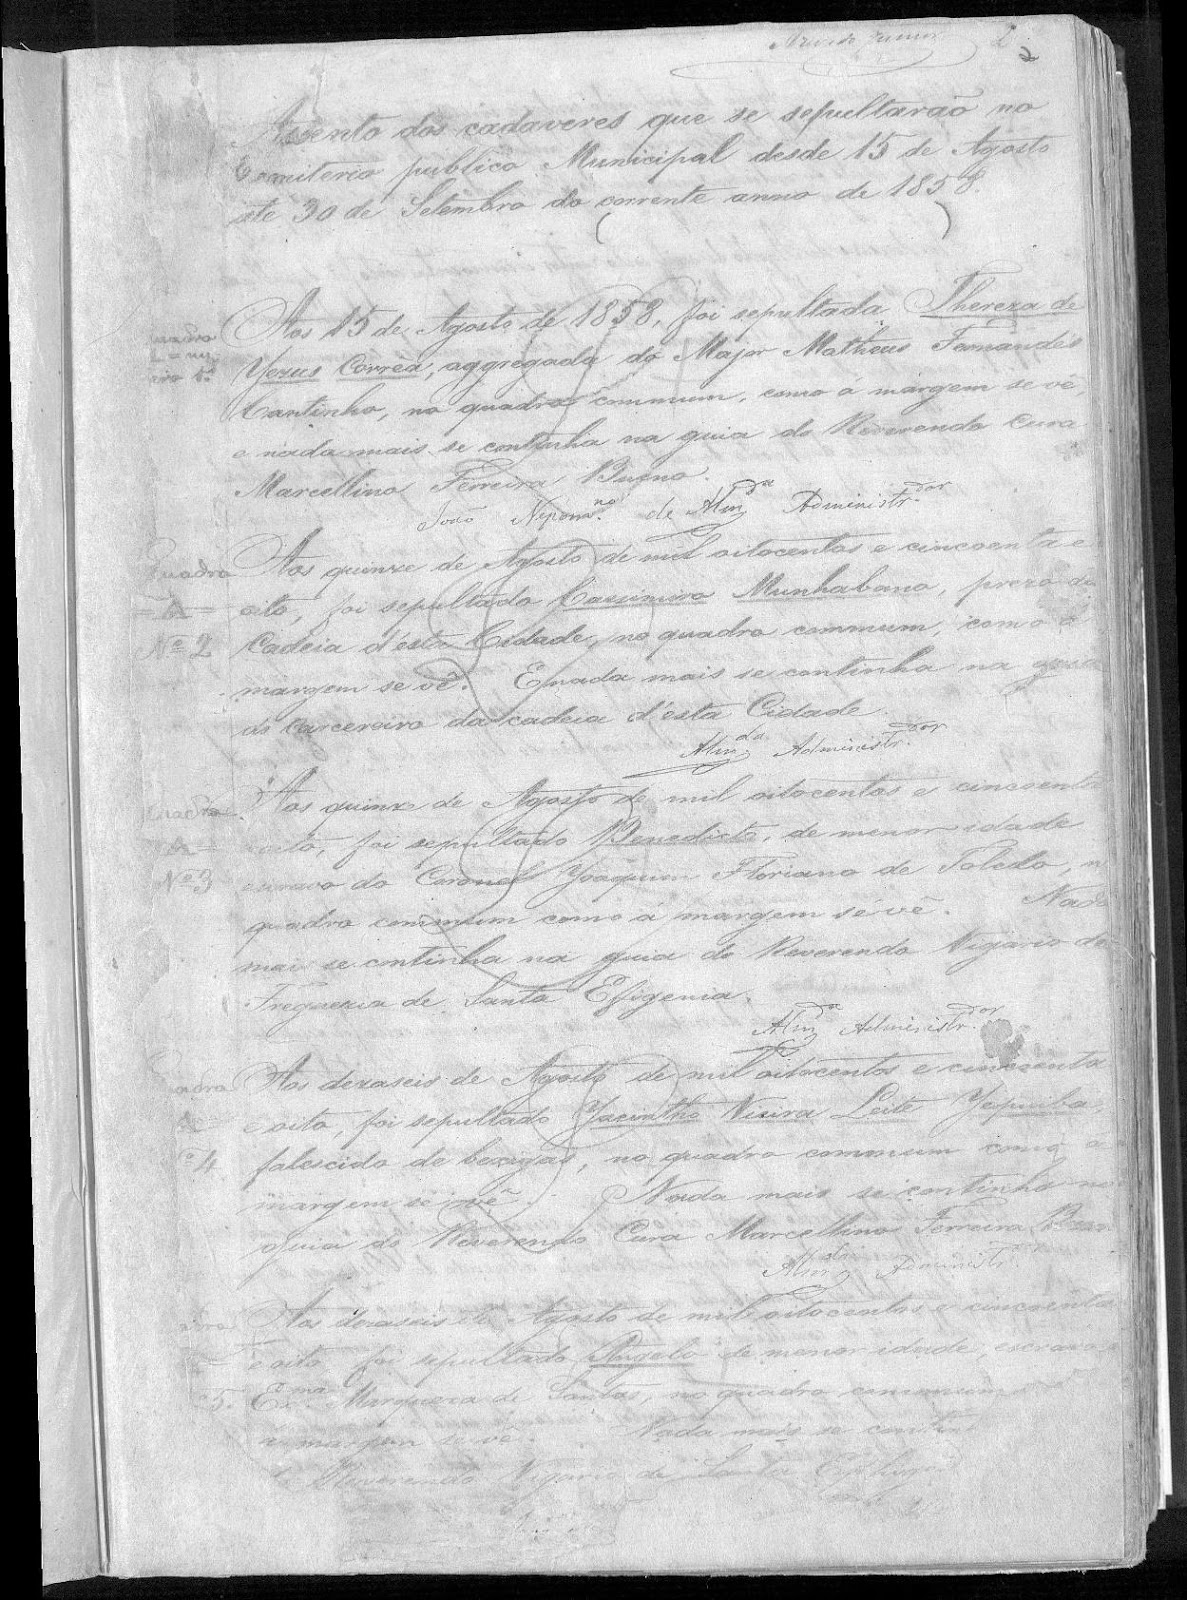 2
Assento dos cadaveres que se sepultarão no
Cemiterio publico Municipal desde 15 de Agosto
ate 30 de Setembro do corrente anno de 1858.
Quadro
Aos 15 de Agosto de 1858, foi sepultada Thereza de
Yezus Corrêa, aggregada do Major Matheus Fernandes
Cantinho, no quadro commum, como á margem se vê,
e nada mais se continha na guia do Reverendo Cura
Marcellino Ferreira Bueno.
João Nepom.no de Alm.da Administr.dor
Quadro
Nº 2
Aos quinze de Agosto de mil oitocentos e cincoenta e
oito, foi sepultado Cassimiro Munhabano, prezo da
Cadeia d'esta Cidade, no quadro commum, como á
margem se vê. E nada mais se continha na guia
do carcereiro da cadeia d'esta Cidade.
Alm.da Administr.dor
Quadro
Nº 3
Aos quinze de Agosto de mil oitocentos e cincoenta
e oito, foi sepultado Benedicto, de menor idade
escravo do Coronel Joaquim Floriano de Toledo, n
quadro commum como á margem se vê. Nada
mais se continha na guia do Reverendo Vigario da
Freguezia de Santa Efigenia.
Alm.da Administr.dor
Quadro
4
Aos dezaseis de Agosto de mil oitocentos e cincoenta
e oito, foi sepultado Yacintho Vieira Leite
falescido de bexigas, no quadro commum como á
margem se vê. Nada mais se continha na
guia do Reverendo Cura Marcellino Ferreira Buen
Alm.da Administr.dor
5.
Aos dezaseis de Agosto de mil oitocentos e cincoenta
e oito foi sepultado Angelo de menor idade, escravo
Ex.ma Marqueza de Santos, no quadro commum
á margem se vê. Nada mais se contin
Reverendo Vigario de Santa